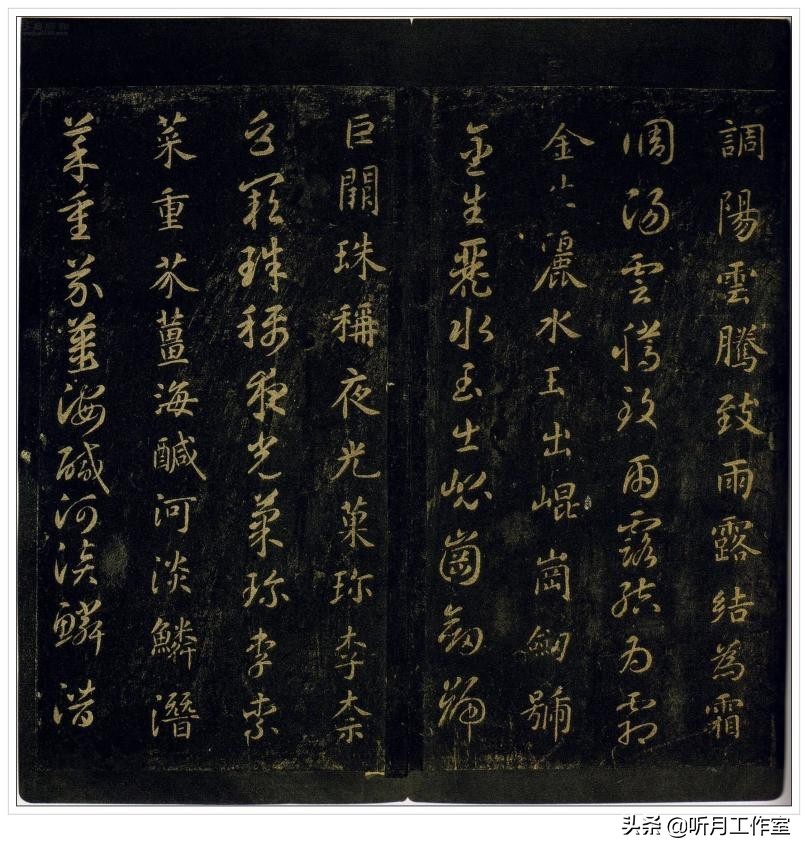 調陽雲騰致雨露結為霜
調陽雲騰致雨露結為霜
金生麗水玉出崐崗劒號
金生麗水玉出崐崗劒號
巨闕珠稱夜光菓珎李柰
巨闕珠稱夜光菓珎李柰
菜重芥薑海醎河淡鱗潛
菜重芥薑海醎河淡鱗潛
头条 @听月工作室